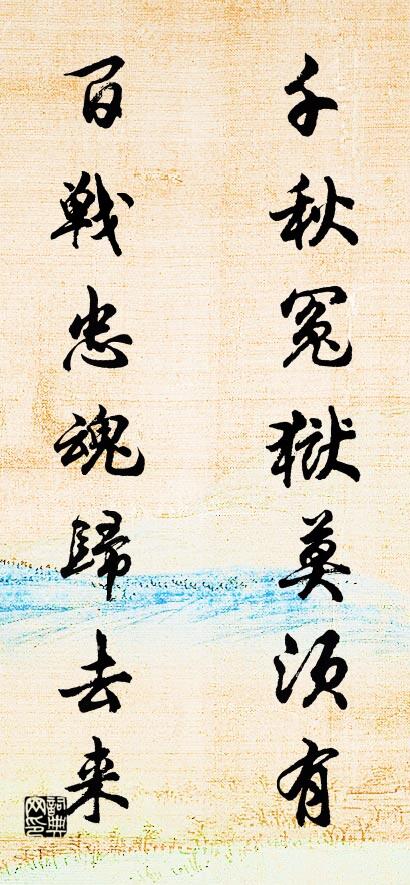 千秋冤獄莫須有
百戰忠魂歸去来
詞典網印